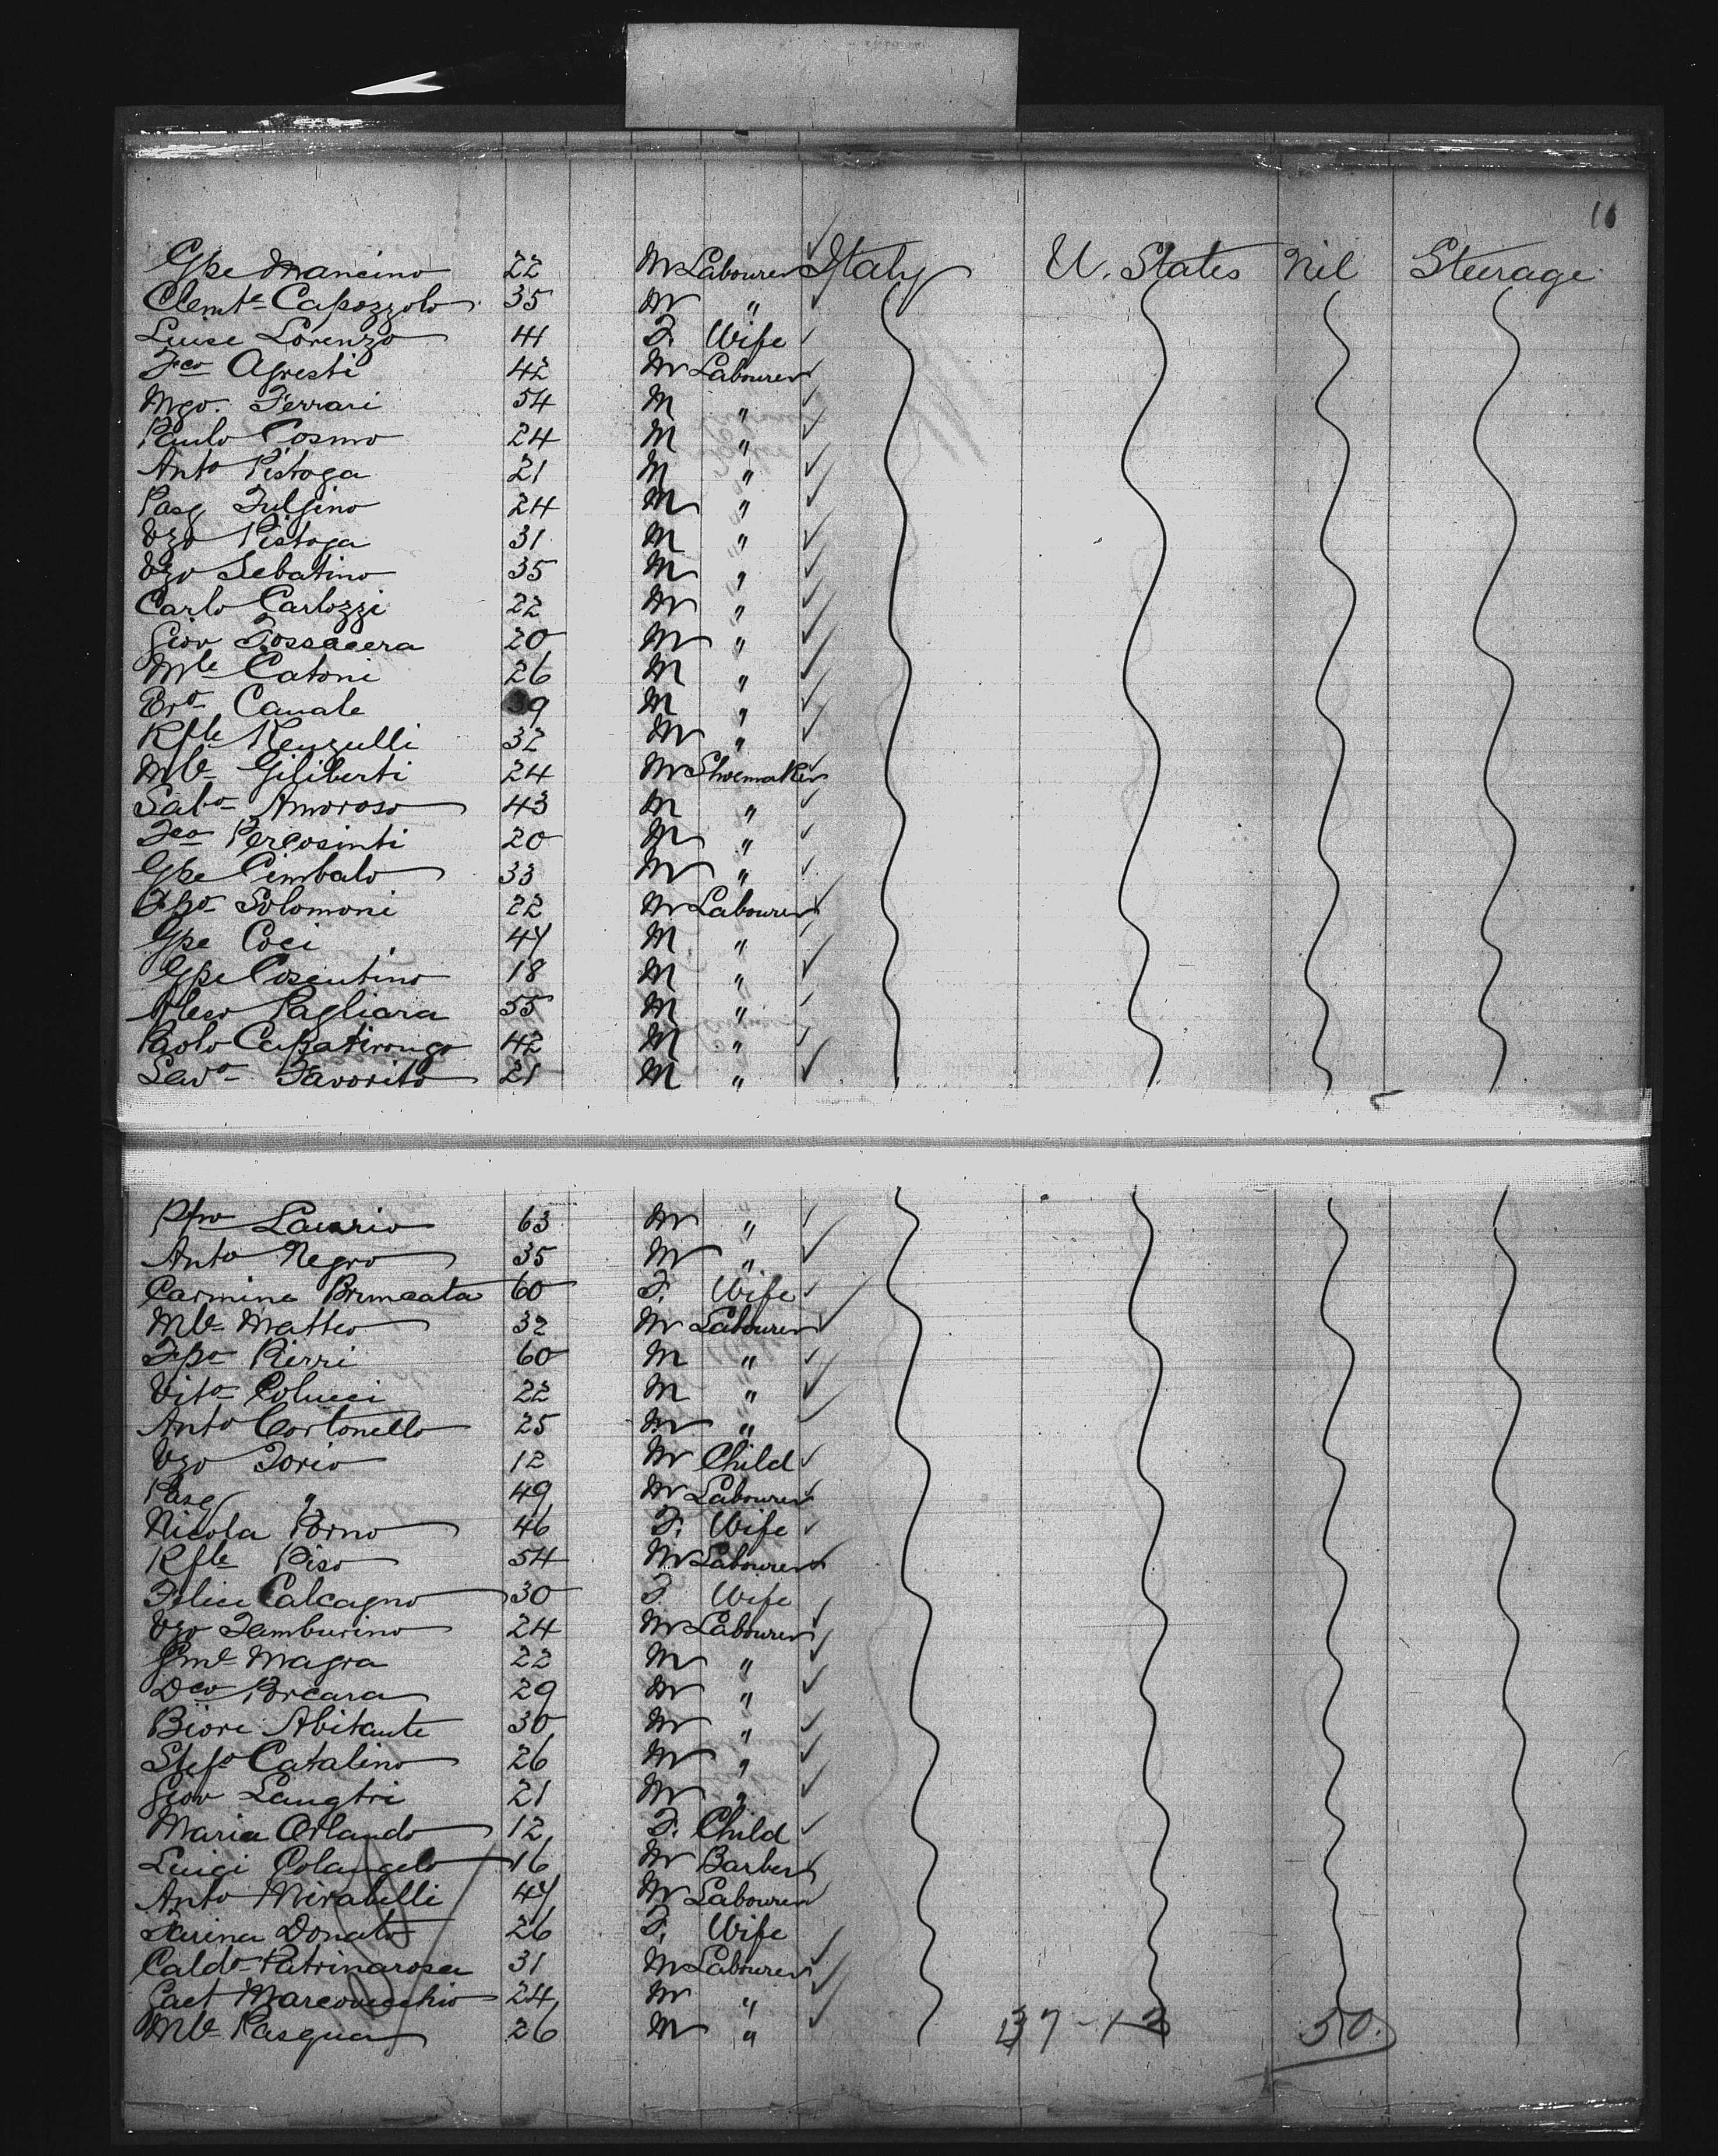 16
Gpe Mancino 22 M Labourer Italy U. States Nil Steerage
Clemte Capozzolo 35 M "
Luise Lorenzo 41 F. Wife
Fco Agresti 42 M Labourer
Mgo. Ferrari 54 M "
Paulo Cosmo 24 M "
Anto Pistoga 21 M "
Pasq Fulgino 24 M "
Vzo Pistoga 31 M "
Vzo Sebatino 35 M "
Carlo Carlozzi 22 M "
Giov Fossacera 20 M "
Mle Catoni 26 M "
Ero Canale 39 M "
Rfle Renzulli 32 M "
Mle Giliberti 24 M Shoemaker
Sabo Amoroso 43 M "
Fco Percosinti 20 M "
Gpe Cimbalo 33 M "
Fpo Solomoni 22 M Labourer
Gpe Coci 47 M "
Gpe Cosentino 18 M "
Aleso Pagliara 55 M "
Paolo Capatirongo 42 M "
Savo Favorito 21 M "
Laurio 63 M "
Anto Negro 35 M "
Carmine Bruncata 60 F. Wife
Mle Matteo 32 M Labourer
Fpo Pierri 60 M "
Vito Colucci 22 M "
Anto Cortonello 25 M "
Vzo Iorio 12 M Child
Pasq " 49 M Labourer
Nicola Porno 46 F. Wife
Rfle Piso 54 M Labourer
Felice Calcagno 30 F. Wife
Vzo Tamburino 24 M Labourer
Gme Magra 22 M "
Dco Porcara 29 M "
Biore Abitante 30 M "
Stefo Catalino 26 M "
Giov Langtri 21 M "
Maria Orlando 12 F. Child
Luigi Colangelo 16 M Barber
Anto Mirabelli 47 M Labourer
Farina Donato 26 F. Wife
Caldo Patrinarosa 31 M Labourer
Gaet Marcovecchio 24 M "
Mle Pasqua 26 M " 37-13 50.